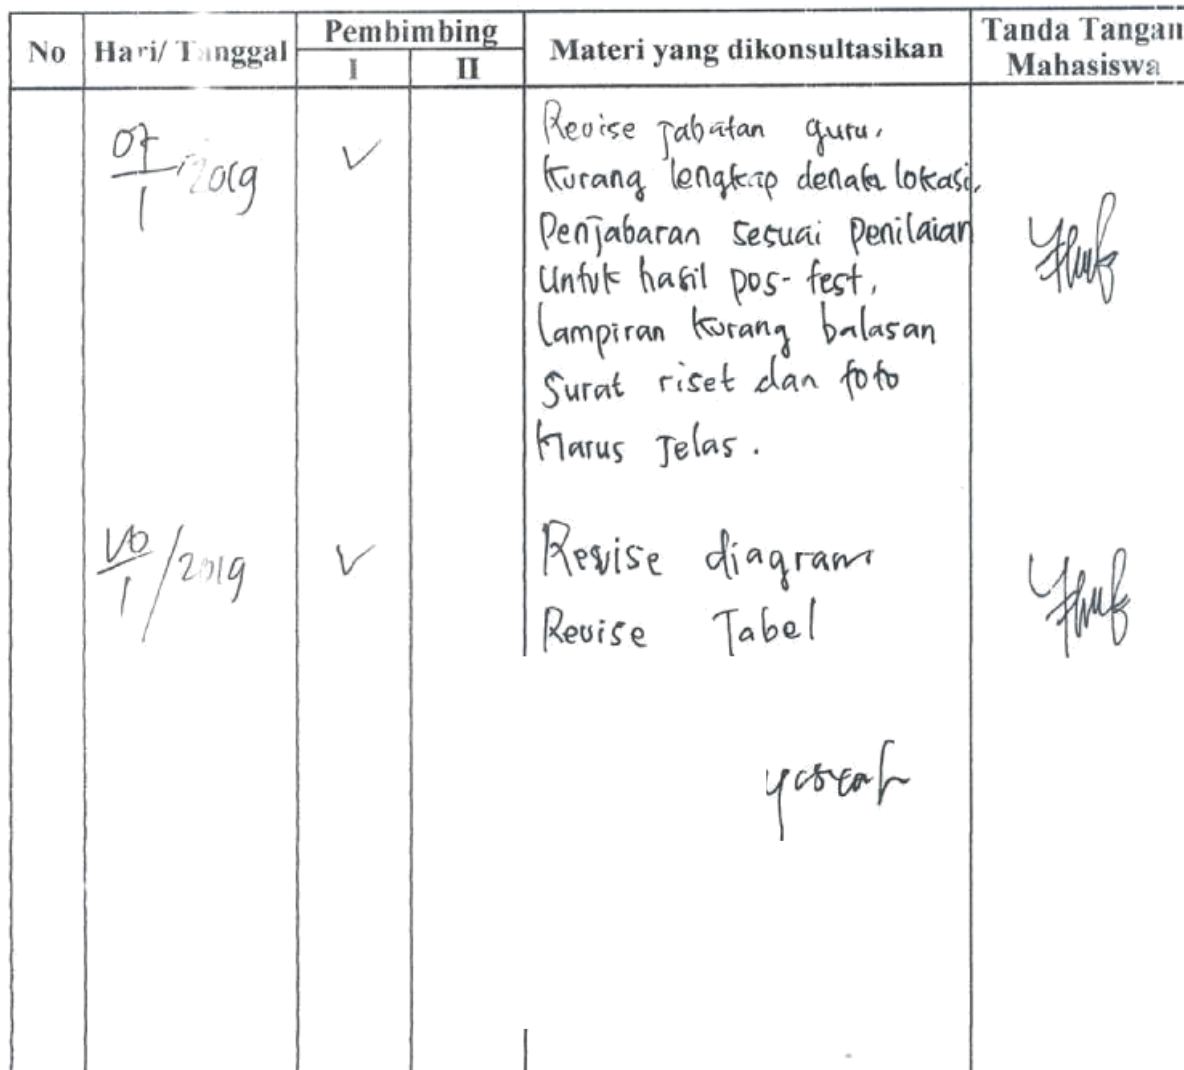 No Hari/ Tanggal Pembimbing Materi yang dikonsultasikan Tanda Tangan Mahasiswa
I II
07/1/2019 V Revise jabatan guru,
kurang lengkap denah lokasi,
Penjabaran sesuai penilaian
Untuk hasil pos-test,
lampiran kurang balasan
Surat riset dan foto
Harus jelas.
/1/2019 V Revise diagram
Revise Tabel